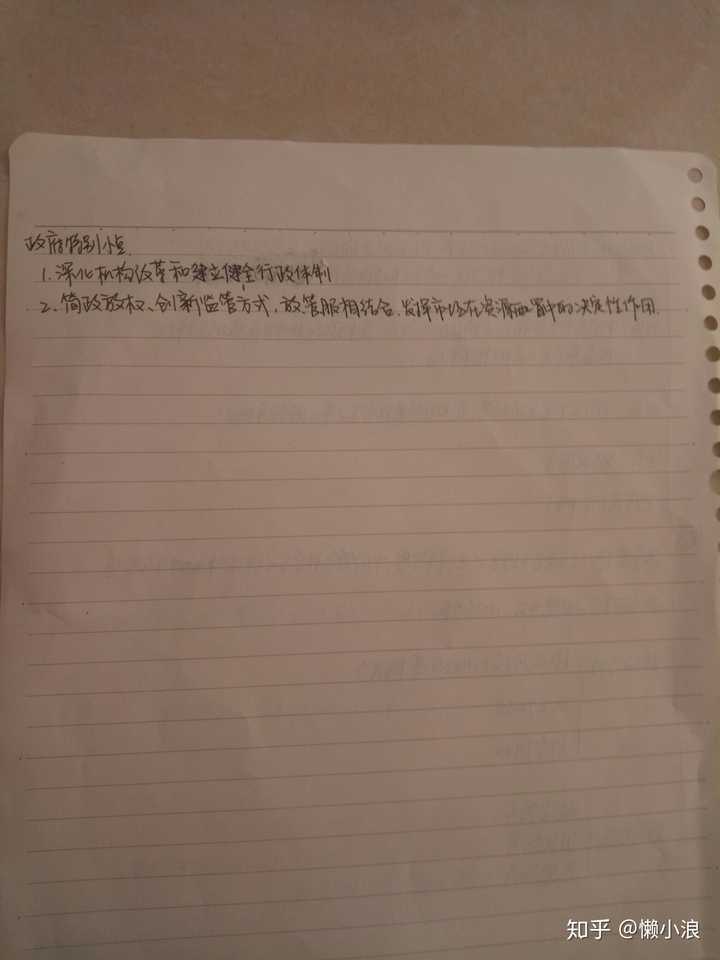 政府特别小点
1.深化机构改革和建立健全行政体制
2.简政放权、创新监管方式,放管服相结合,发挥市场在资源配置中的决定性作用.
知乎 @懒小浪